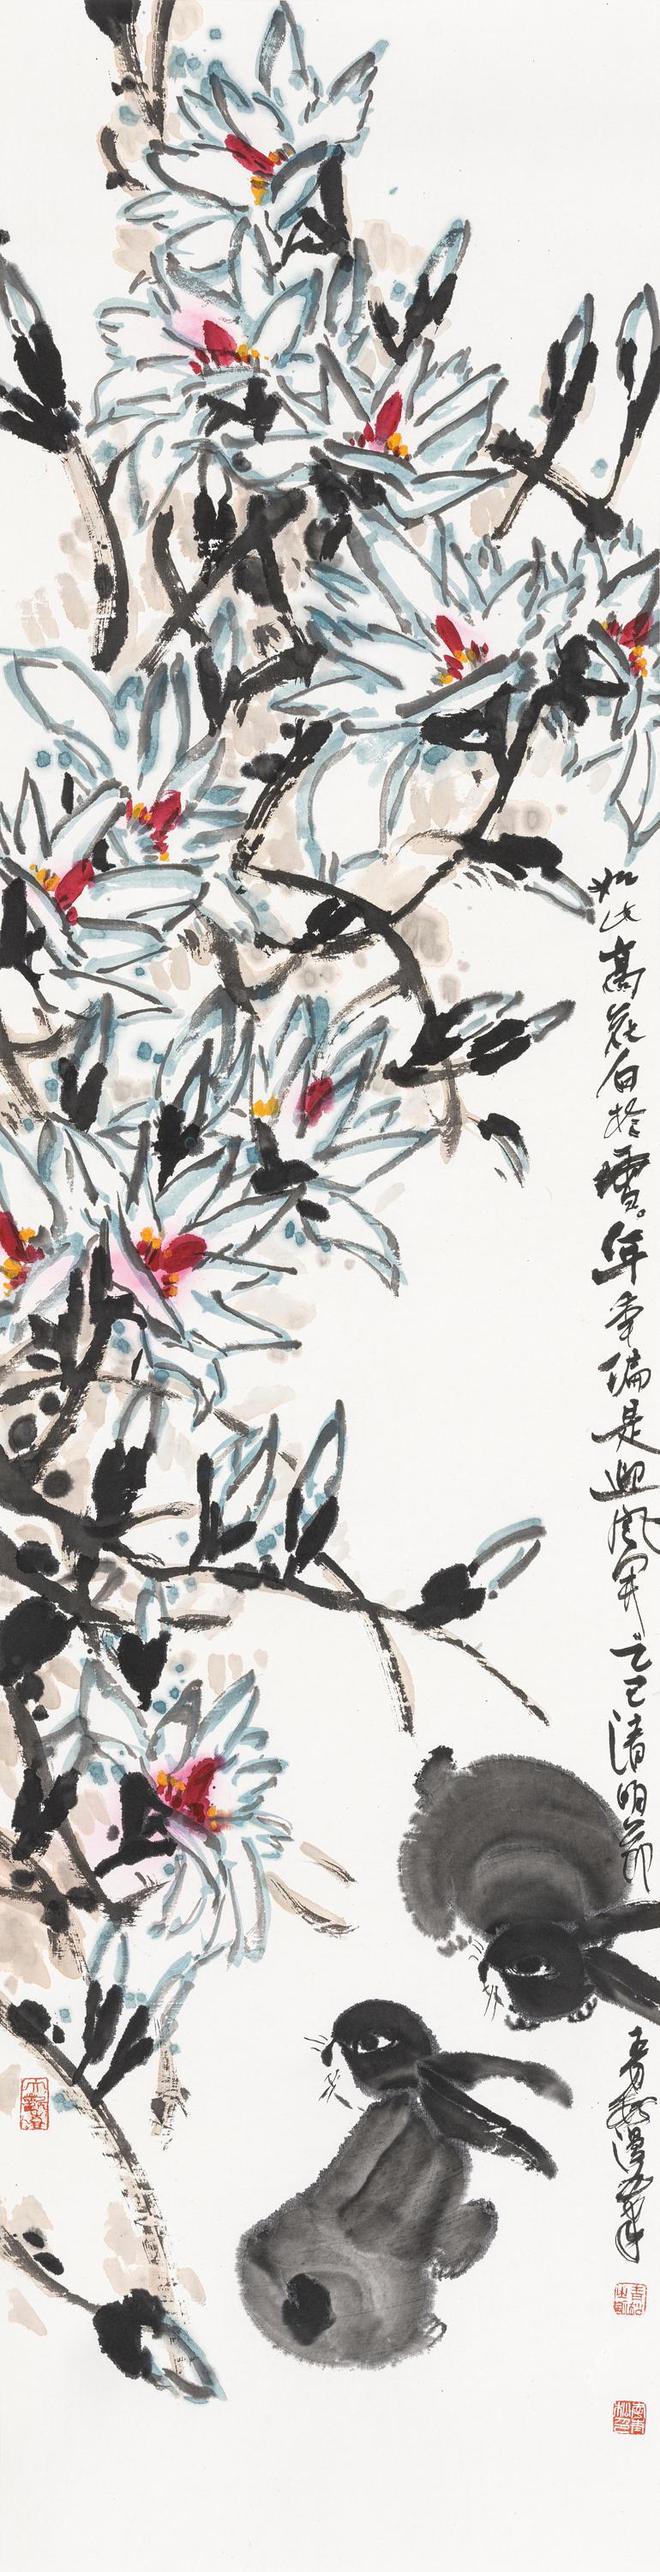 如此高花白於雪。年年偏是迎風开乙巳清明節